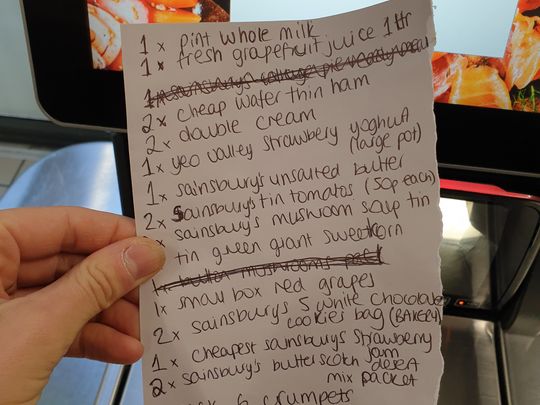 1 x pint whole milk
1 x fresh grapefruit juice 1 ltr
1 x sainsbury's cottage pie ready meal
2 x cheap wafer thin ham
2 x double cream
1 x yeo valley strawbery yoghurt
(large pot)
1 x sainsbury's unsalted butter
2 x sainsbury's tin tomatos (50p each)
x sainsbury's mushroom soup tin
x tin green giant sweetcorn
1 x button mushrooms
1x small box red grapes
2x sainsbury's 5 white chocolate
cookies bag (BAKERY)
1 x cheapest sainsbury's strawberry
jam
2 x sainsbury's butterscotch desert
mix packet
x 6 crumpets